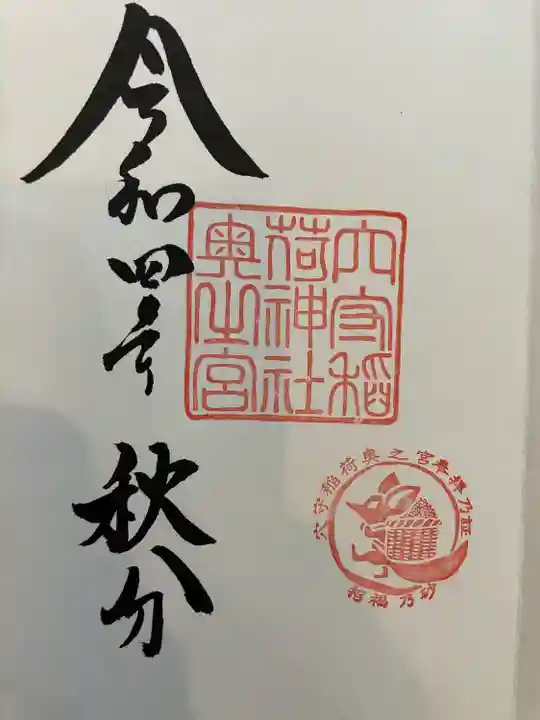 令和四年 秋分
穴守稲
荷神社
奥之宮
穴守稲荷奥之宮奉拝乃証
招福乃砂